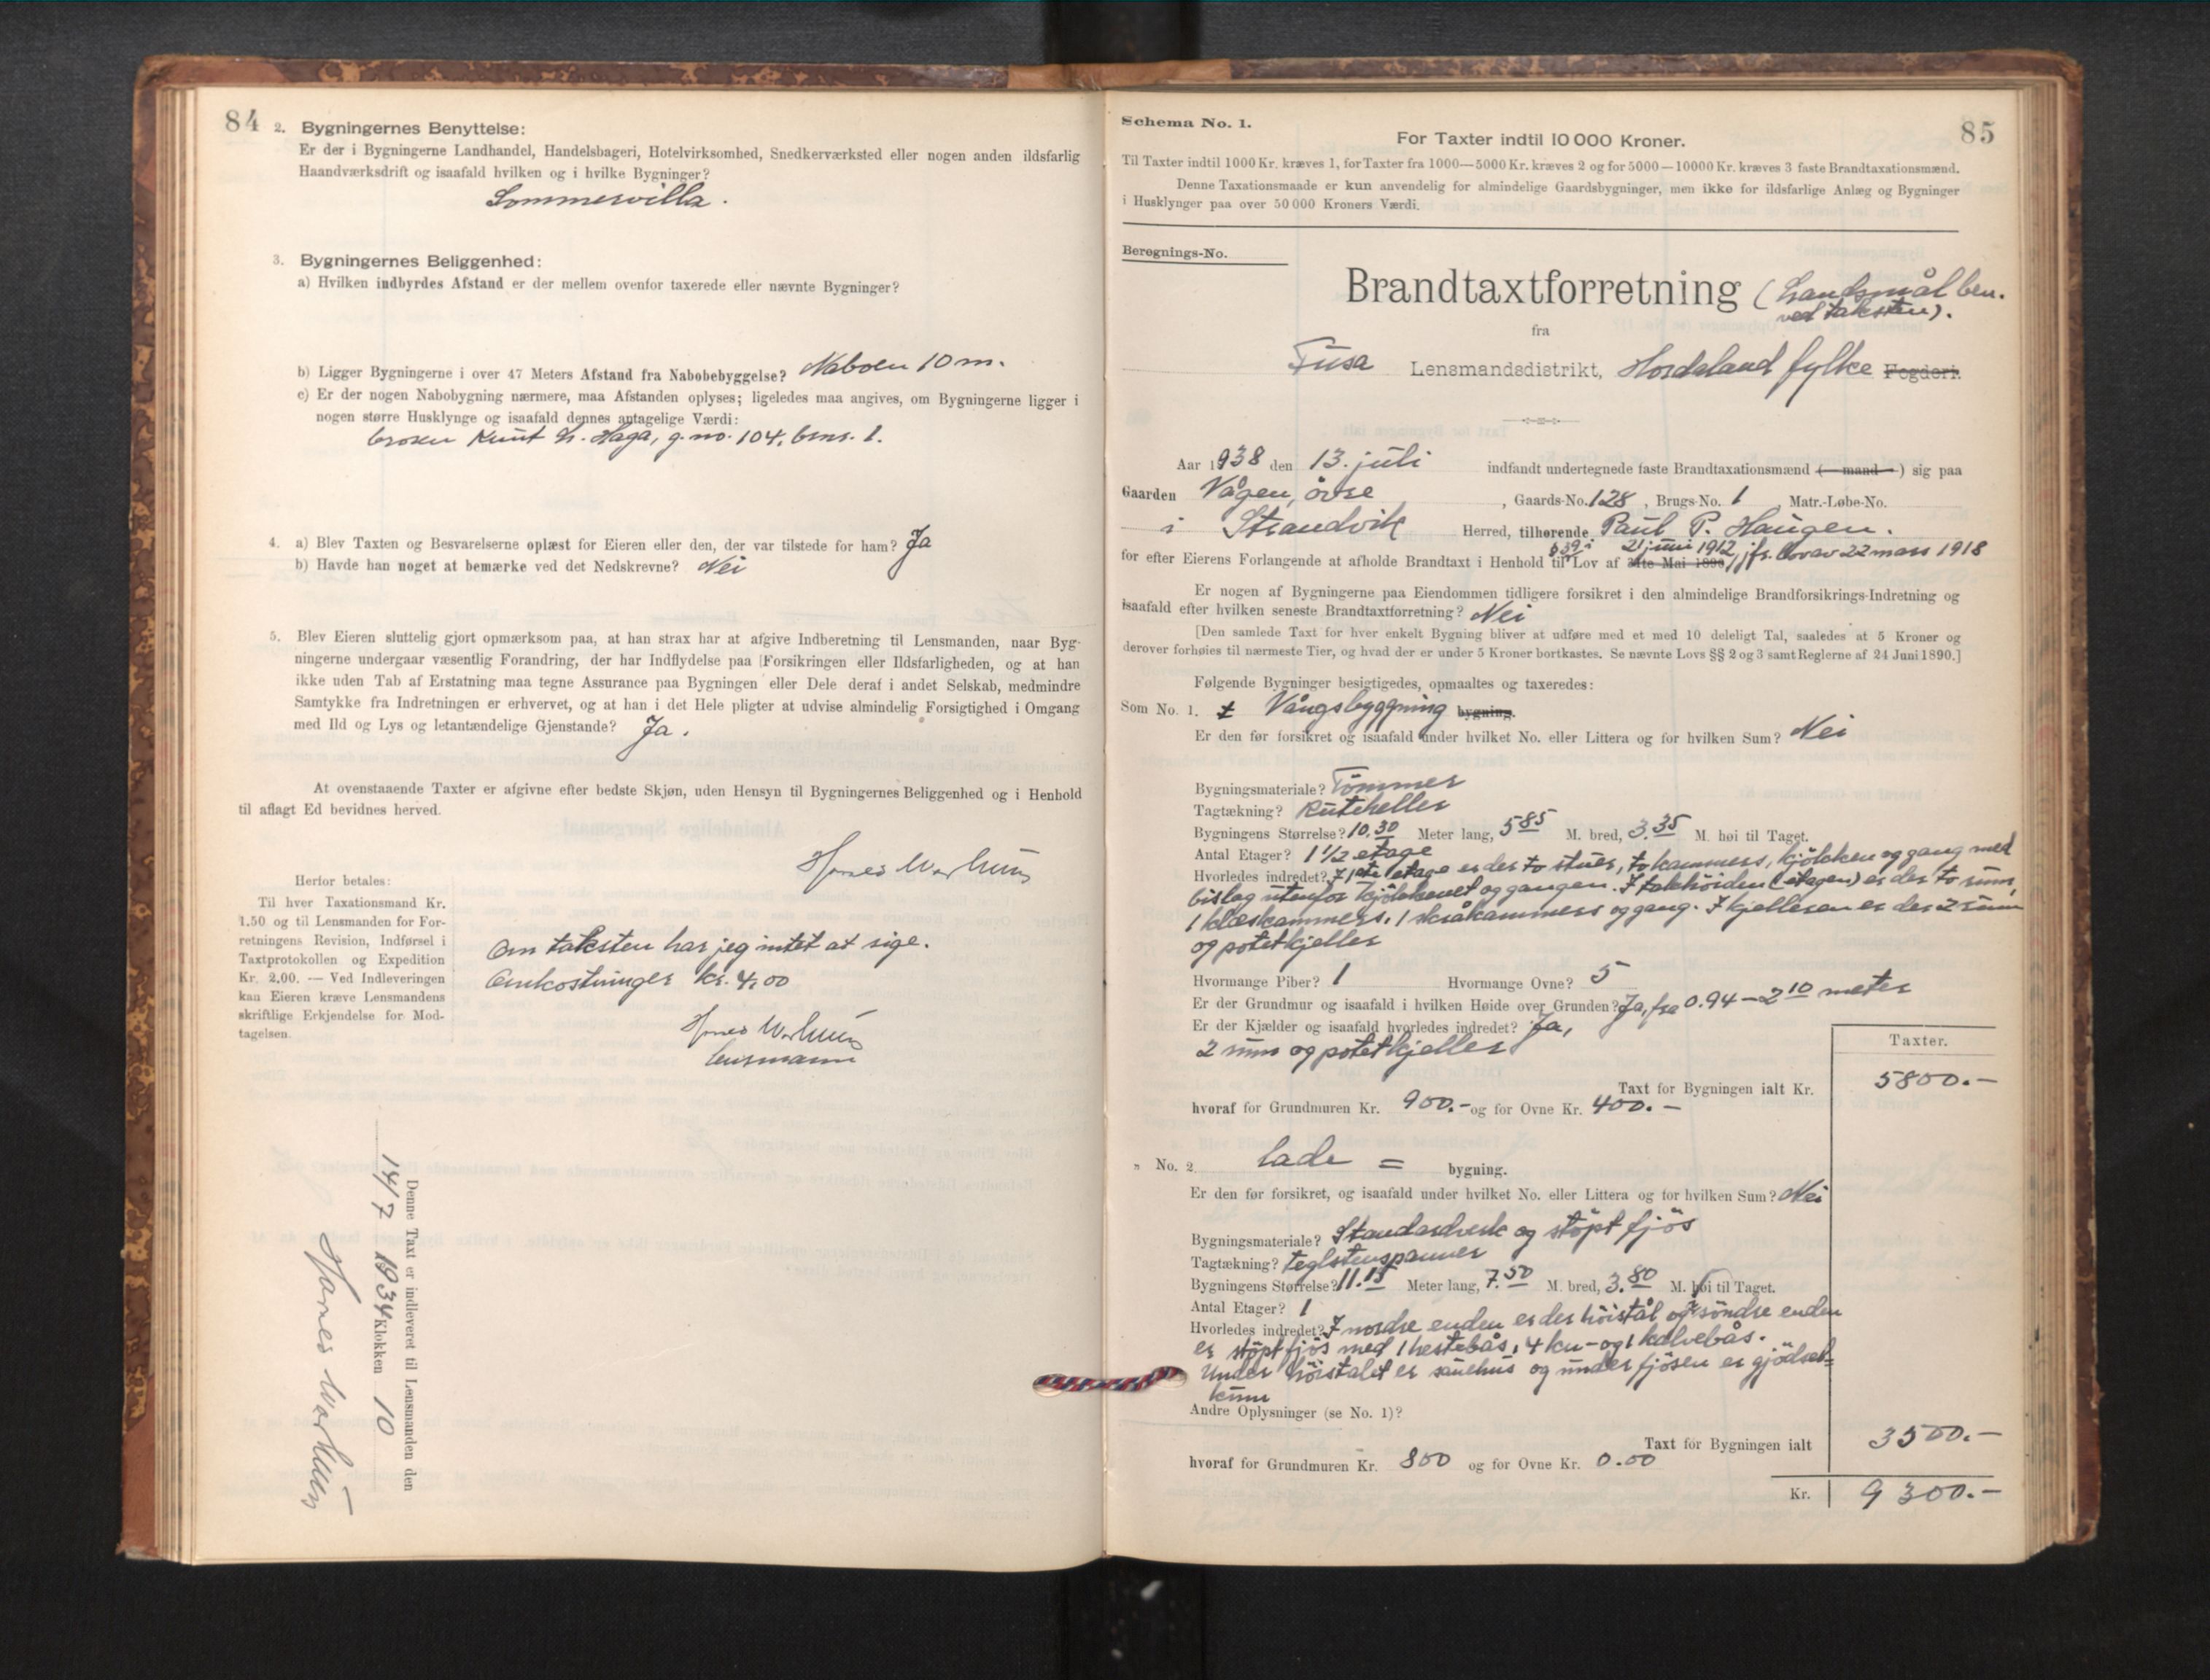 84
2. Bygningernes Benyttelse:
Er der i Bygningerne Landhandel, Handelsbageri, Hotelvirksomhed, Snedkerværksted eller nogen anden ildsfarlig
Haandværksdrift og isaafald hvilken og i hvilke Bygninger?
Sommervilla.
3. Bygningernes Beliggenhed:
a) Hvilken indbyrdes Afstand er der mellem ovenfor taxerede eller nævnte Bygninger?
b) Ligger Bygningerne i over 47 Meters Afstand fra Nabobebyggelse? Naboen 10 m.
c) Er der nogen Nabobygning nærmere, maa Afstanden oplyses; ligeledes maa angives, om Bygningerne ligger i
nogen større Husklynge og isaafald dennes antagelige Værdi:
Knut Haga, g.no. 104, 1.
4. a) Blev Taxten og Besvarelserne oplæst for Eieren eller den, der var tilstede for ham? Ja
b) Havde han noget at bemærke ved det Nedskrevne? Nei
5. Blev Eieren sluttelig gjort opmærksom paa, at han strax har at afgive Indberetning til Lensmanden, naar Byg-
ningerne undergaar væsentlig Forandring, der har Indflydelse paa Forsikringen eller Ildsfarligheden, og at han
ikke uden Tab af Erstatning maa tegne Assurance paa Bygningen eller Dele deraf i andet Selskab, medmindre
Samtykke fra Indretningen er erhvervet, og at han i det Hele pligter at udvise almindelig Forsigtighed i Omgang
med Ild og Lys og letantændelige Gjenstande? Ja.
At ovenstaaende Taxter er afgivne efter bedste Skjøn, uden Hensyn til Bygningernes Beliggenhed og i Henhold
til aflagt Ed bevidnes herved.
Herfor betales:
Til hver Taxationsmand Kr.
1.50 og til Lensmanden for For-
retningens Revision, Indførsel i
Taxtprotokollen og Expedition
Kr. 2.00. — Ved Indleveringen
kan Eieren kræve Lensmandens
skriftlige Erkjendelse for Mod-
tagelsen.
Om taksten har jeg intet at sige.
Omkostninger kr. 4,00
lensmann
Denne Taxt er indleveret til Lensmanden den
14/7 1934 Klokken 10
85
Schema No. 1.
For Taxter indtil 10 000 Kroner.
Til Taxter indtil 1000 Kr. kræves 1, for Taxter fra 1000—5000 Kr. kræves 2 og for 5000—10000 Kr. kræves 3 faste Brandtaxationsmænd.
Denne Taxationsmaade er kun anvendelig for almindelige Gaardsbygninger, men ikke for ildsfarlige Anlæg og Bygninger
i Husklynger paa over 50 000 Kroners Værdi.
Beregnings-No.
Brandtaxtforretning (Landsmål ben.
ved taksten).
fra
Fusa Lensmandsdistrikt, Hordaland fylke Fogderi.
Aar 1938 den 13. juli indfandt undertegnede faste Brandtaxationsmænd (—mand—) sig paa
Gaarden Vågen, øvre, Gaards-No. 128, Brugs-No. 1 Matr.-Løbe-No.
i Strandvik Herred, tilhørende Paul P. Haugen.
§ 39 i 21 juni 1912, jfr. lov av 22 mars 1918
for efter Eierens Forlangende at afholde Brandtaxt i Henhold til Lov af
Er nogen af Bygningerne paa Eiendommen tidligere forsikret i den almindelige Brandforsikrings-Indretning og
isaafald efter hvilken seneste Brandtaxtforretning? Nei
[Den samlede Taxt for hver enkelt Bygning bliver at udføre med et med 10 deleligt Tal, saaledes at 5 Kroner og
derover forhøies til nærmeste Tier, og hvad der er under 5 Kroner bortkastes. Se nævnte Lovs §§ 2 og 3 samt Reglerne af 24 Juni 1890.]
Følgende Bygninger besigtigedes, opmaaltes og taxeredes:
Som No. 1. Vångsbyggning bygning.
Er den før forsikret og isaafald under hvilket No. eller Littera og for hvilken Sum? Nei
Bygningsmateriale? Tömmer
Tagtækning? Ruteheller
Bygningens Størrelse? 10.30 Meter lang, 5 85 M. bred, 3.35 M. høi til Taget.
Antal Etager? 1 1/2 etage
Hvorledes indredet? I 1ste etage er der to stuer, to kammers, kjökken og gang med
bislag utenfor kjökkenet og gangen. I takhöiden (etagen) er der to rum,
1 klæskammers, 1 skråkammers og gang. I kjelleren er der 2 rum
og potetkjeller
Hvormange Piber? 1 Hvormange Ovne? 5
Er der Grundmur og isaafald i hvilken Høide over Grunden? Ja, fra 0.94 — 2 10 meter
Er der Kjælder og isaafald hvorledes indredet? Ja,
2 rum og potetkjeller
Taxter.
Taxt for Bygningen ialt Kr. 5800.—
hvoraf for Grundmuren Kr. 900.- og for Ovne Kr. 400.—
„ No. 2 Lade = bygning.
Er den før forsikret, og isaafald under hvilket No. eller Littera og for hvilken Sum? Nei
Bygningsmateriale? Standardverk og stöpt fjös
Tagtækning? teglstenspanner
Bygningens Størrelse? 11.15 Meter lang, 7.50 M. bred, 3.80 M. høi til Taget.
Antal Etager? 1
Hvorledes indredet? I nordre enden er der höistål og i söndre enden
er stöpt fjös med 1 hestebås, 4 ku- og 1 kalvebås.
Under höistalet er sauehus og under fjösen er gjödsel=
kum
Andre Oplysninger (se No. 1)?
Taxt for Bygningen ialt 3500.—
hvoraf for Grundmuren Kr. 800 og for Ovne Kr. 0.00
Kr. 9300.—